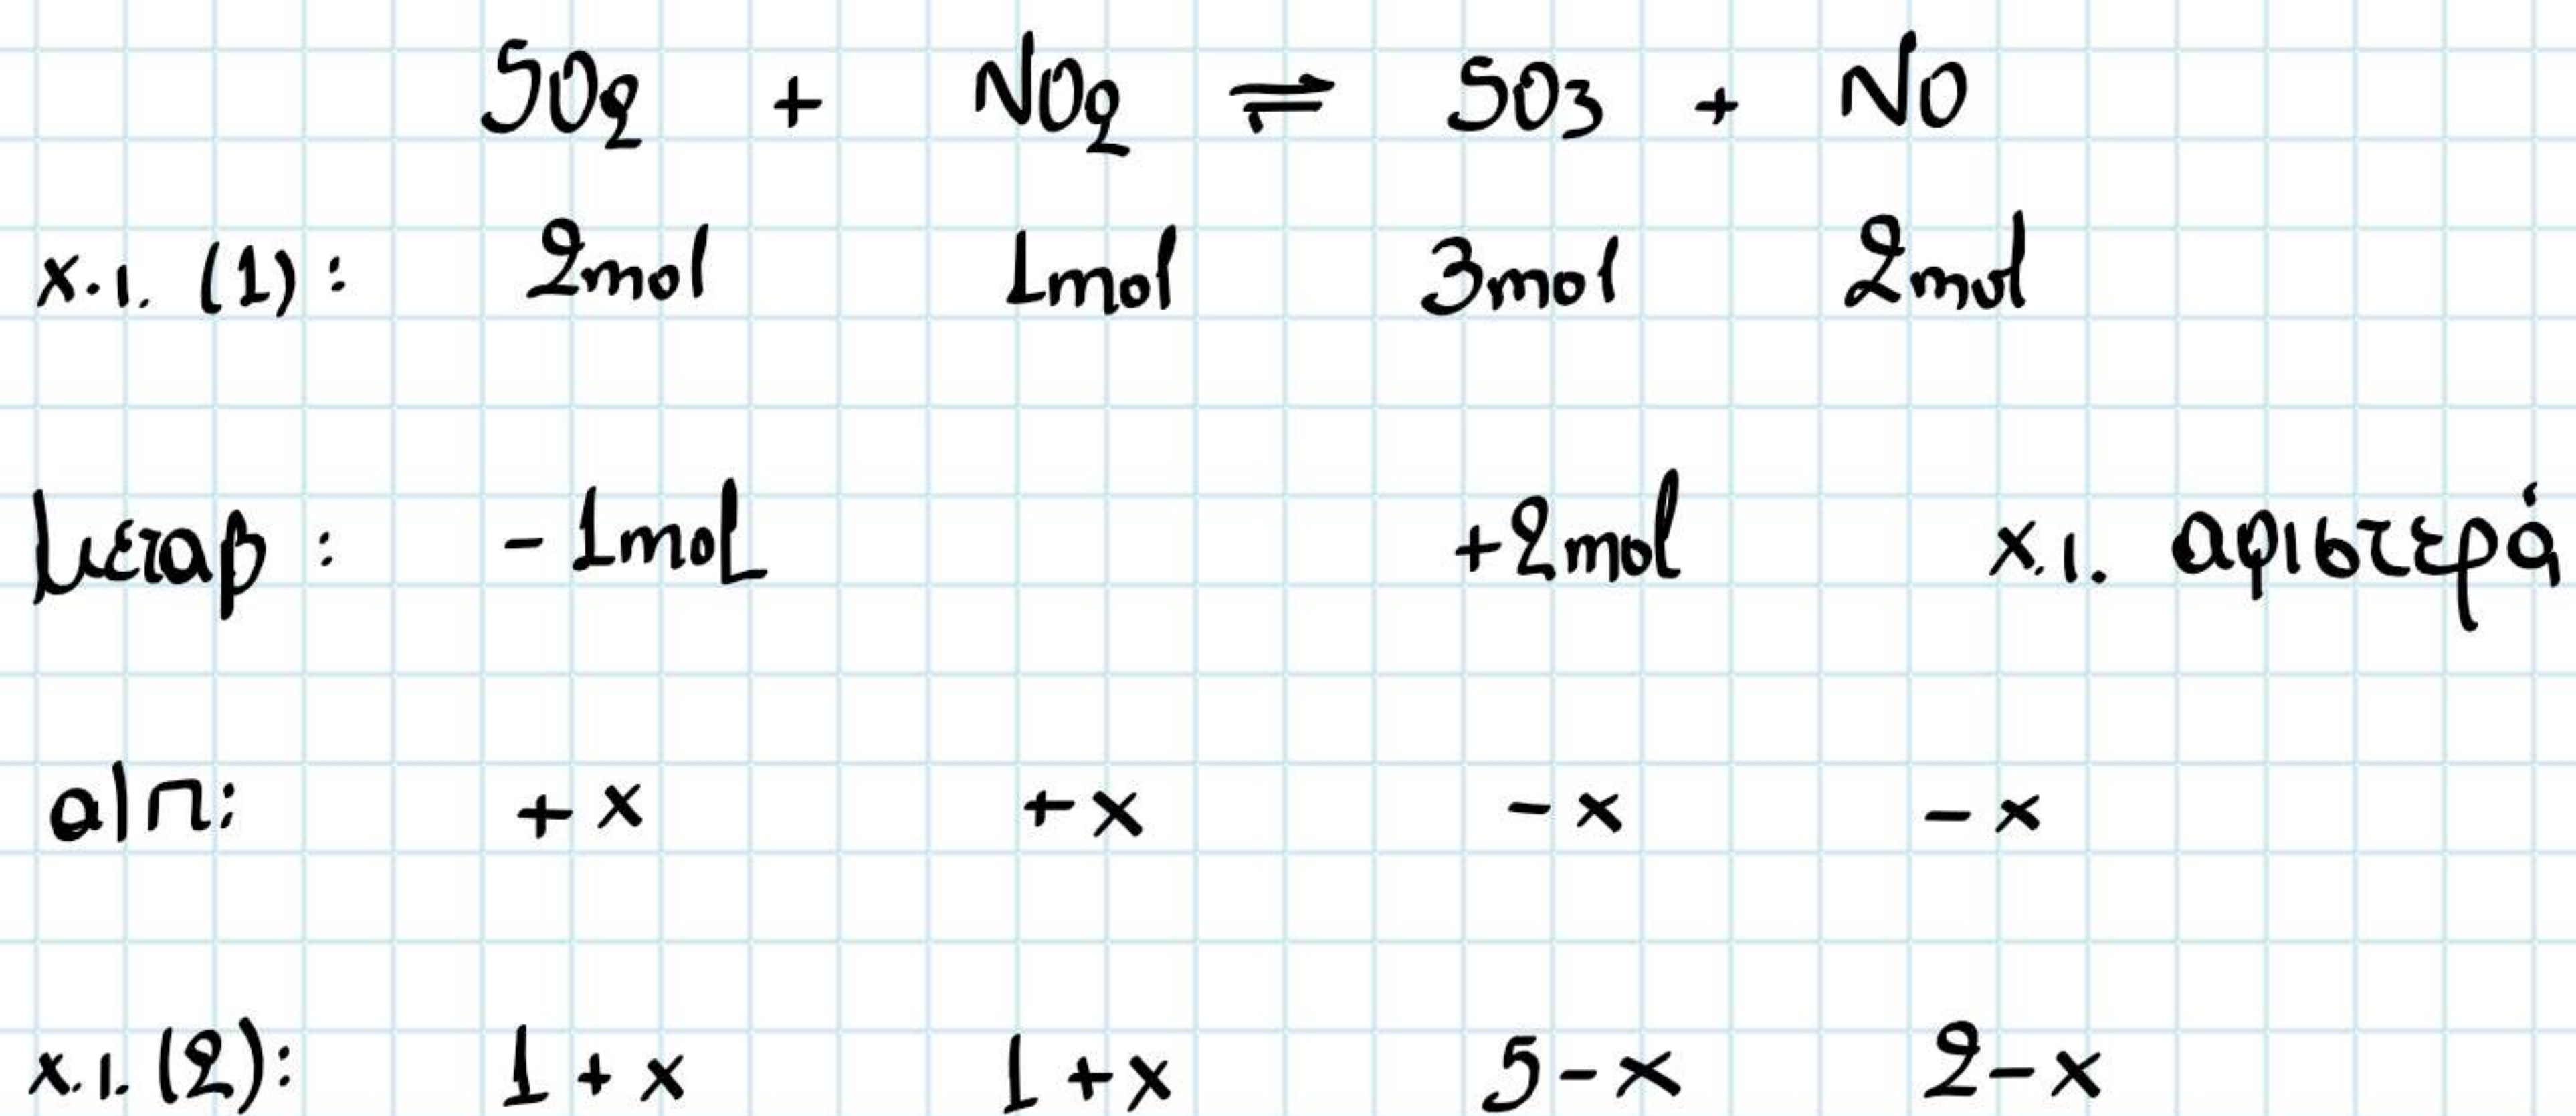 SO2 + NO2 ⇌ SO3 + NO
χ.ι. (1): 2mol 1mol 3mol 2mol
μεταβ: -1mol +2mol χ.ι. αριστερά
α|π: +x +x -x -x
χ.ι. (2): 1+x 1+x 5-x 2-x